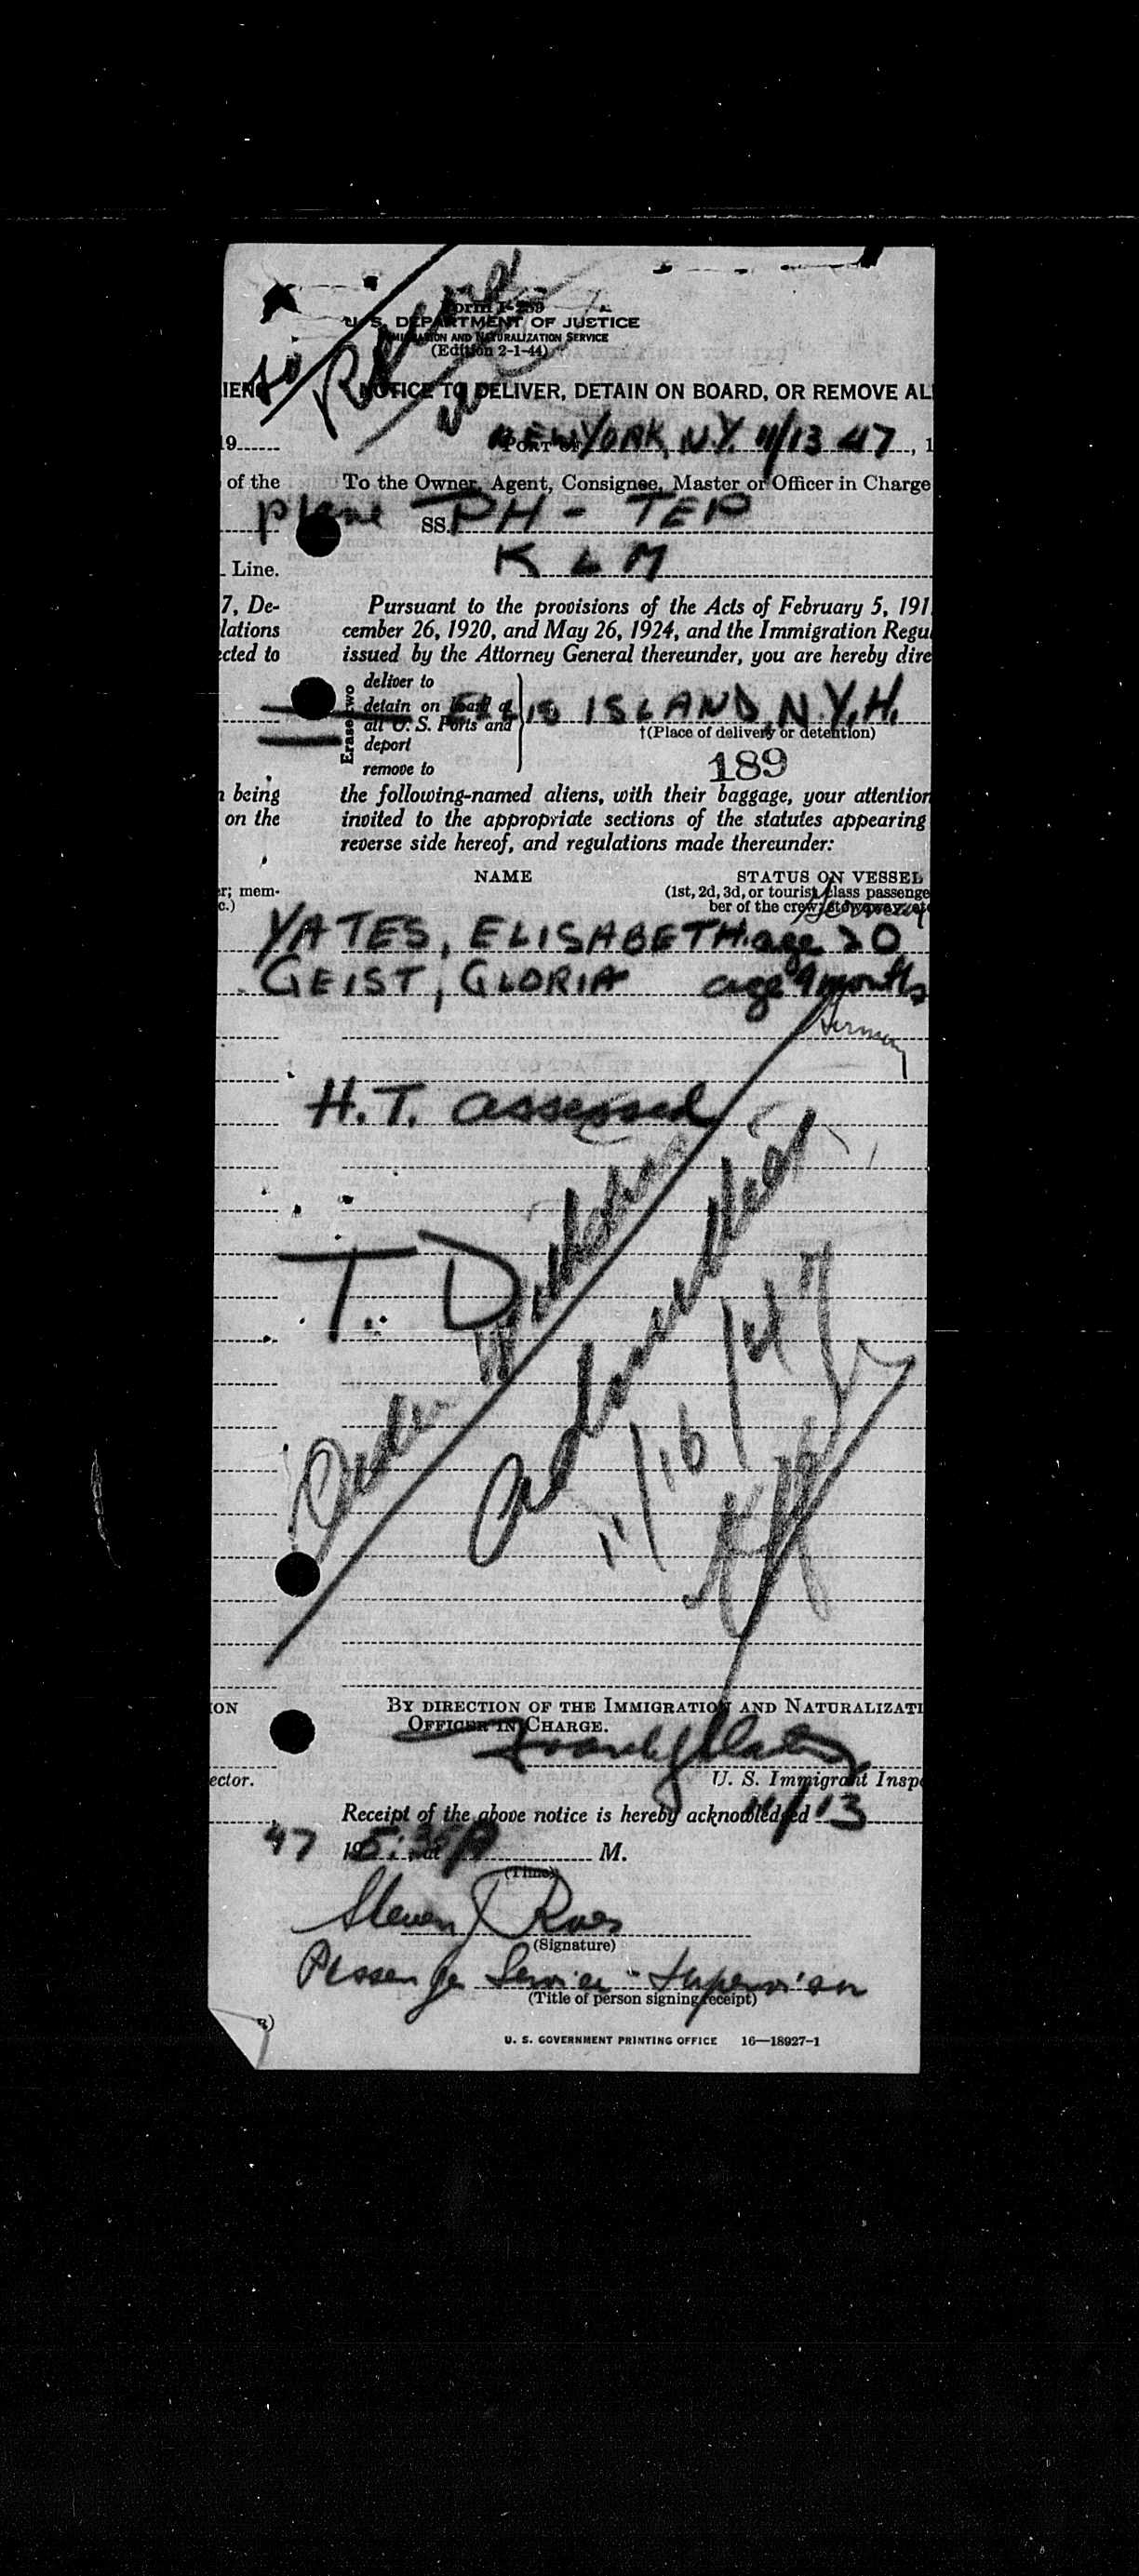 Form I-259
U. S. DEPARTMENT OF JUSTICE
IMMIGRATION AND NATURALIZATION SERVICE
(Edition 2-1-44)
IEN NOTICE TO DELIVER, DETAIN ON BOARD, OR REMOVE AL
19 PORT OF NEW YORK, N.Y. 11/13 47, 1
of the To the Owner, Agent, Consignee, Master or Officer in Charge
plane SS. PH - TEP
K L M
Line.
7, De- Pursuant to the provisions of the Acts of February 5, 191
lations cember 26, 1920, and May 26, 1924, and the Immigration Regu
ected to issued by the Attorney General thereunder, you are hereby dire
Erase two
deliver to
detain on board at ELLIS ISLAND, N.Y.H.
all U. S. Ports and
†(Place of delivery or detention)
deport
remove to
189
n being the following-named aliens, with their baggage, your attention
on the invited to the appropriate sections of the statutes appearing
reverse side hereof, and regulations made thereunder:
NAME STATUS ON VESSEL
r; mem- (1st, 2d, 3d, or tourist class passenge
c.) ber of the crew; stowaway, etc
Germany
YATES, ELISABETH age 20
GEIST, GLORIA age 9 months
Germany
H.T. assessed
T. D.
11/16/47
ION BY DIRECTION OF THE IMMIGRATION AND NATURALIZATI
OFFICER IN CHARGE.
ector. U. S. Immigrant Inspe
Receipt of the above notice is hereby acknowledged 11/13
47 19 at M.
(Time)
Steven J
(Signature)
Passenger Service - Supervisor
(Title of person signing receipt)
U. S. GOVERNMENT PRINTING OFFICE 16—18927-1